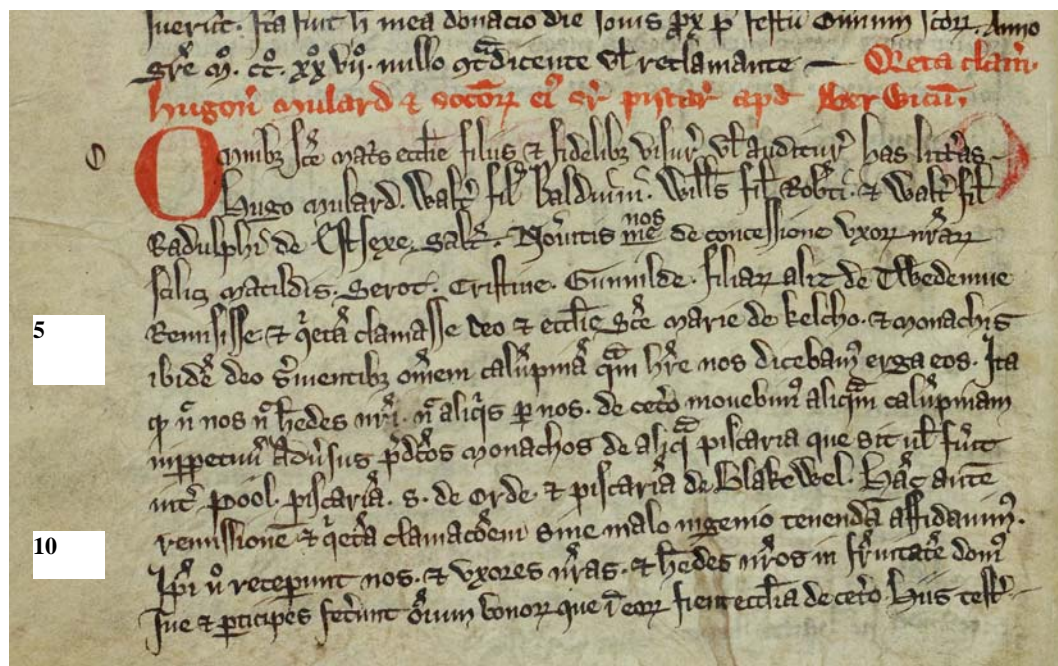 fuerūt. Ita fuit h̄ mea donacio die Iouis p̄x p̄ festū Omnium scōꝝ. Anno
grē M. cc͛. xx vij. nullo ɔt̃dicente ul̄ reclamante — Q̄eta clam̄.
hugoñ mulard ⁊ socōꝝ eiꝰ sr̄ piscar̄ apđ Ber Wicū.
Omnibꝫ sc̄e mat͛s eccl̄ie filiis ⁊ fidelibꝫ visur̄ ul̄ auditur̄ has litt̃as
O
hugo mulard. Walt͛ fil̄ Balduini. Will̄s fil̄ Rob̄ti. ⁊ Walt͛ fil̄
nos
Radulphi de Estsexe. Salt̄. Nou͛itis me de concessione vxoꝝ nr̄aꝝ
scilicꝫ Matildis. Serot. Cristine. Gunnilde. filiaꝝ aliz de TWedemue
5
Remisisse. ⁊ q͛etā clamasse deo ⁊ eccl̄ie Sc̄e Marie de kelcho. ⁊ monachis
ibidē deo s͛uientibꝫ om̄em calūpniā q̄m h̄re nos dicebamꝰ erga eos. Ita
ꝙ n̄ nos n̄ h̄edes nr̄i. n̄ aliq͛s ꝑ nos. de cet͛o mouebimꝰ aliq̄m calūpniam
inꝑpetuū adu͛sus p̄dc̄os monachos de aliq̄ piscaria que sit ul̄ fu͛it
int͛ pool. piscariā. s. de Orde. ⁊ piscariā de BlakeWel. hāc autē
10
remissionē ⁊ q͛etā clamac̄oem sine malo ingenio tenendā affidauimꝰ.
Ip̄i u͛o receperunt nos. ⁊ vxores nr̄as. ⁊ h̄edes nr̄os in fr̄nitatē domꝰ
sue ⁊ ꝑticipes fec͛unt ōium bonoꝝ que ī eoꝝ fient eccl̄ia de cet͛o hiis test̄.